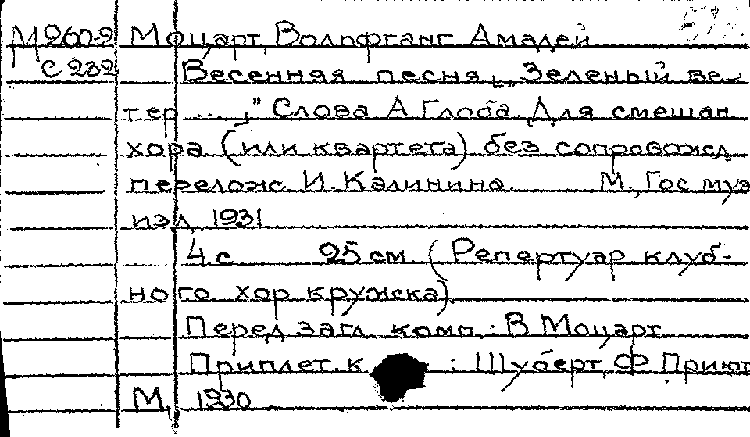 М260-2 Моцарт, Вольфганг Амадей
С 232 Весенняя песня „Зеленый ве-
тер ...," Слова А Глоба Для смешан
хора (или квартета) без сопровожд
перелож. И. Калинина М, Гос муз
изд, 1931
4 с 25 см (Репертуар клуб-
ного хор кружка)
Перед загл комп.: В Моцарт
Приплет. к : Шуберт, Ф Приют
М, 1930